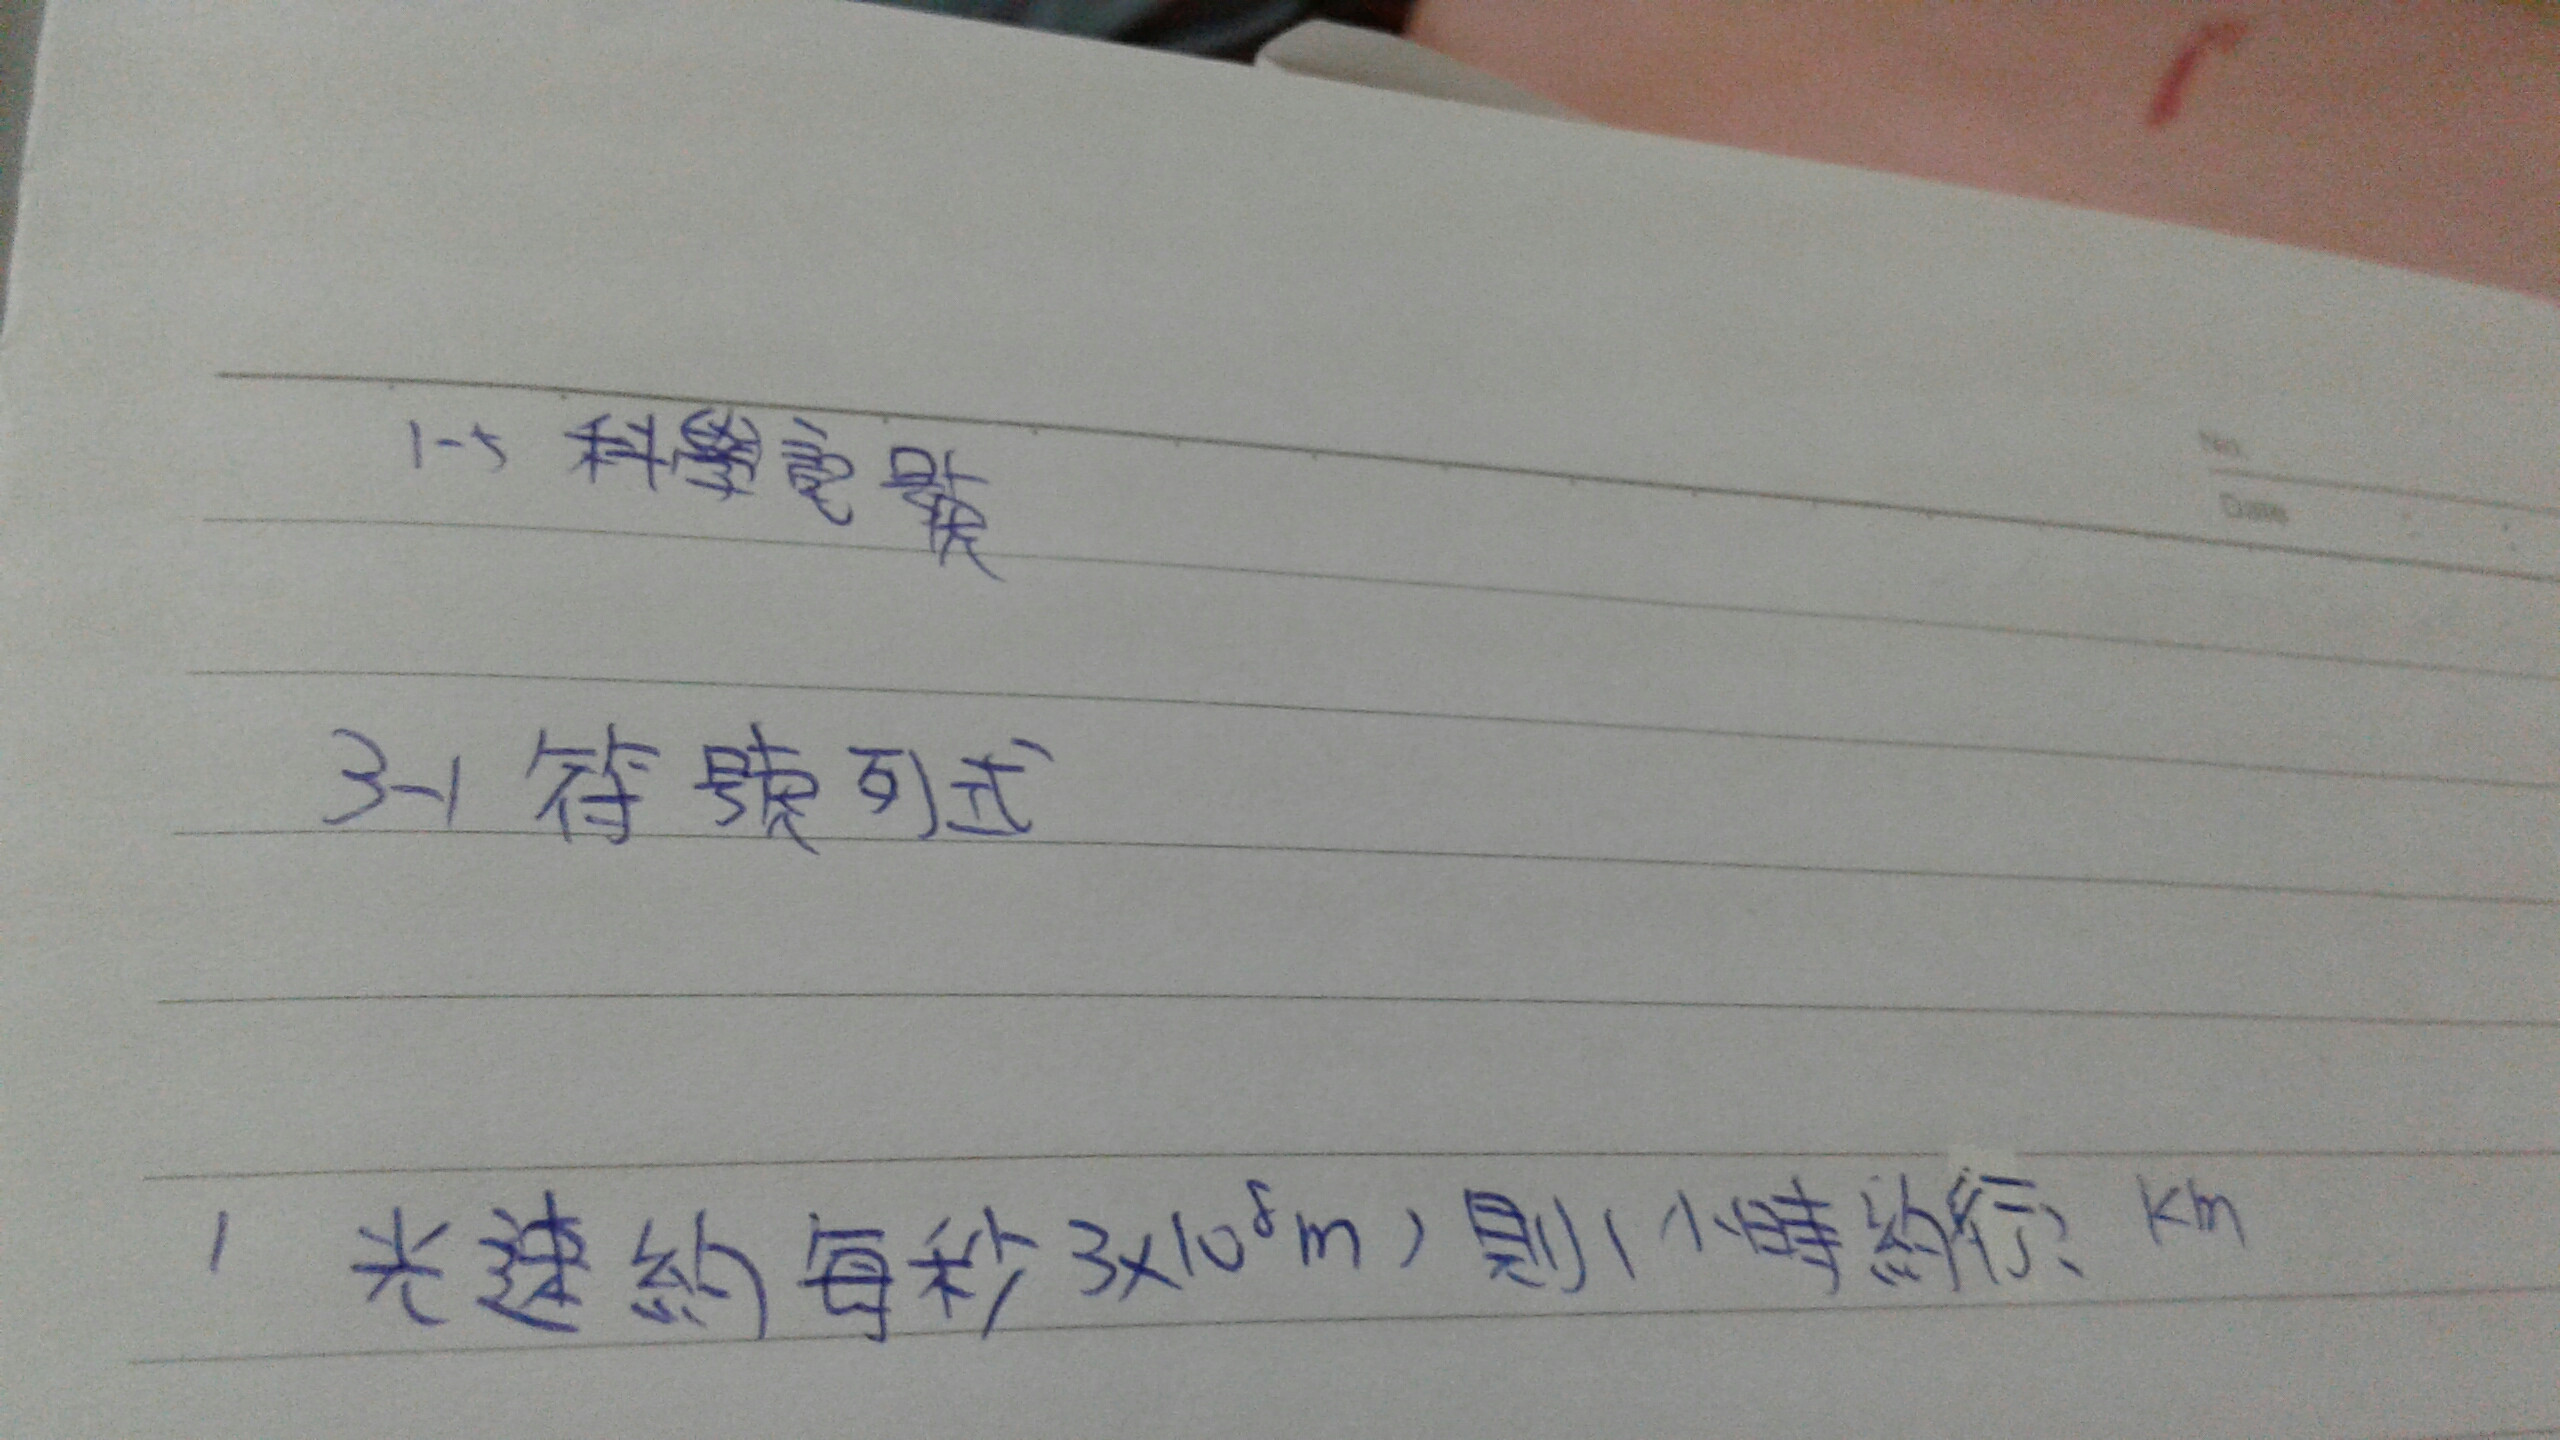 No.
Date
1-5 科學記號
3-1 符號列式
1 光速約每秒3×10⁸m,則1小時約行? km